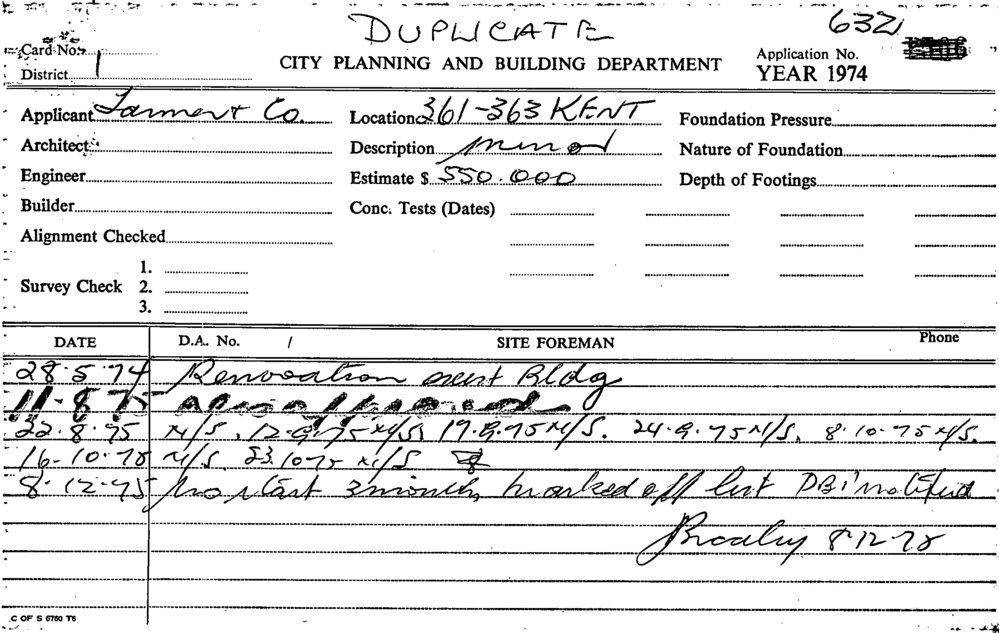 DUPLICATE
632
Card No.
District 1
CITY PLANNING AND BUILDING DEPARTMENT
Application No.
YEAR 1974
Applicant Co.
Location 361-363 KENT
Foundation Pressure
Architect
Description minor
Nature of Foundation
Engineer
Estimate $ 550.000
Depth of Footings
Builder
Conc. Tests (Dates)
Alignment Checked
1.
Survey Check 2.
3.
DATE D.A. No. / SITE FOREMAN Phone
28.5.74 Renovation exist Bldg
11-8-75
22.8.75 N/S. 12.9.75 N/S. 17.9.75 N/S. 24.9.75 N/S. 8.10.75 N/S.
16-10-75 N/S 23.10 75 N/S
8.12.75 No start 3 months, marked off list DBI notified
8-12-75
C OF S 6750 T5